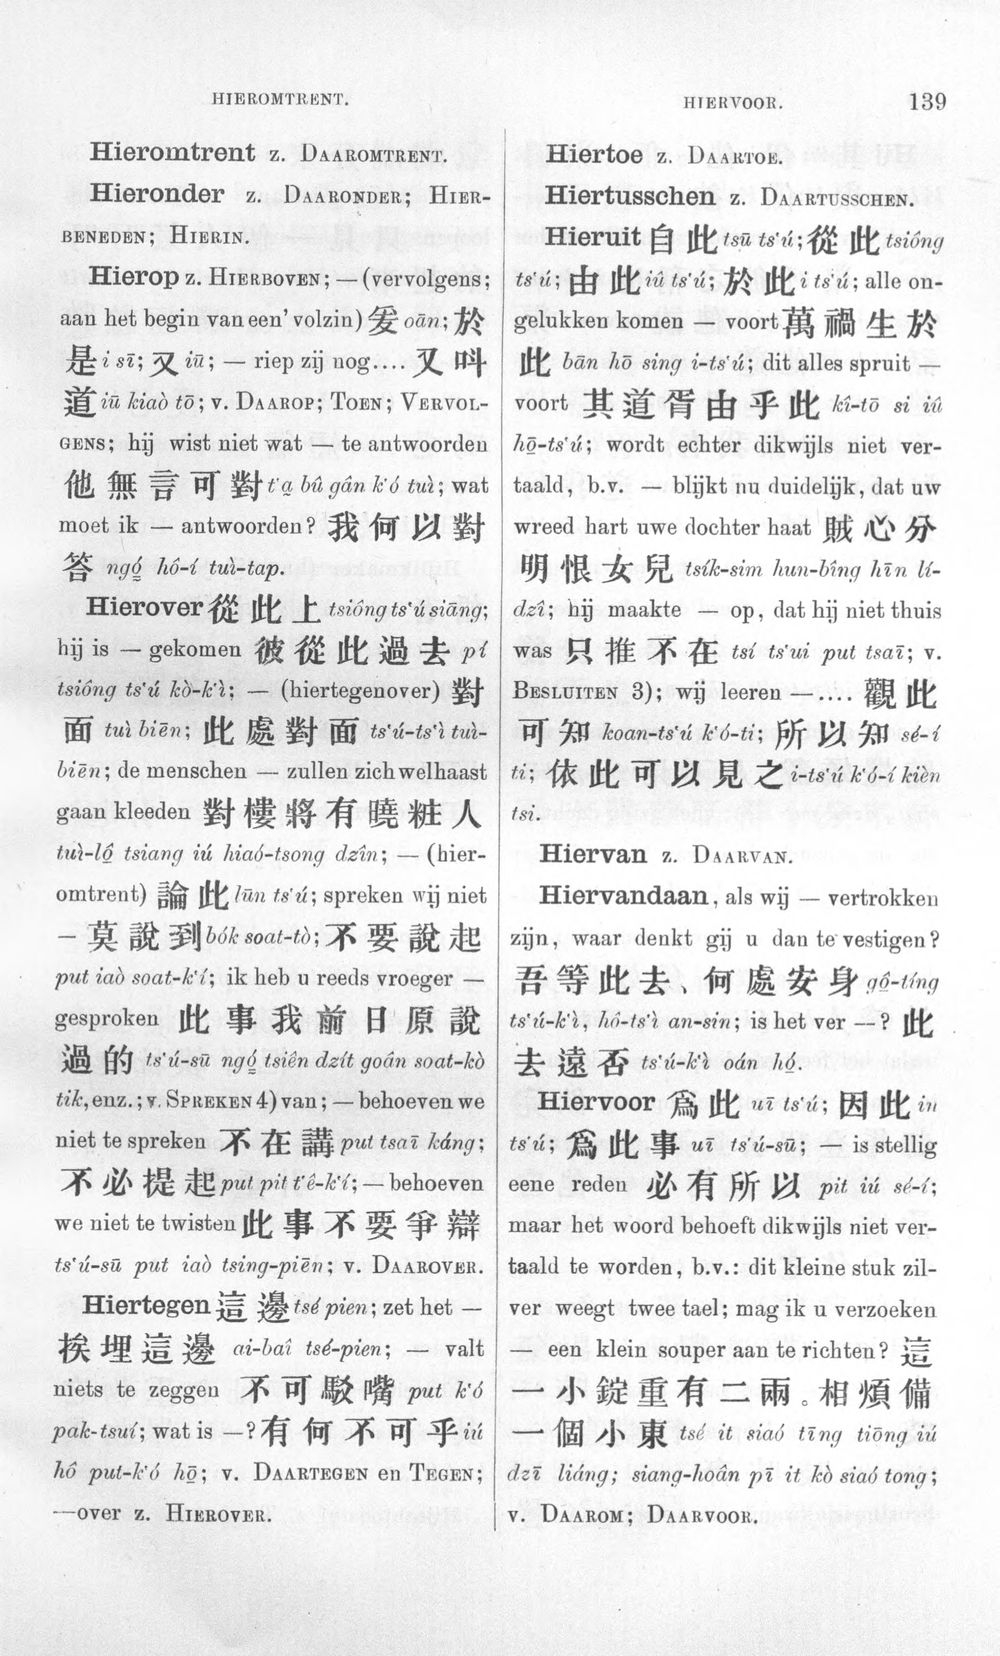 HIEROMTRENT.
HIERVOOR. 139
Hieromtrent z. Daaromtrent.
Hieronder z. Daaronder; Hier-
beneden; Hierin.
Hierop z. Hierboven; — (vervolgens;
aan het begin van een' volzin) 爰 oān; 於
是 i sī; 又 iū; — riep zij nog.... 又 叫
道 iū kiaò tō; v. Daarop; Toen; Vervol-
gens; hij wist niet wat — te antwoorden
他 無 言 可 對 t'a̱ bû gân k'ó tuì; wat
moet ik — antwoorden? 我 何 以 對
答 ngó̱ hô-í tuì-tap.
Hierover 從 此 上 tsiông ts'ú siāng;
hij is — gekomen 彼 從 此 過 去 pí
tsiông ts'ú kò-k'ì; — (hiertegenover) 對
面 tuì biēn; 此 處 對 面 ts'ú-ts'ì tuì-
biēn; de menschen — zullen zich welhaast
gaan kleeden 對 樓 將 有 曉 粧 人
tuì-lô̱ tsiang iú hiaó-tsong dzîn; — (hier-
omtrent) 論 此 lūn ts'ú; spreken wij niet
— 莫 說 到 bók soat-tò; 不 要 說 起
put iaò soat-k'í; ik heb u reeds vroeger —
gesproken 此 事 我 前 日 原 說
過 的 ts'ú-sū ngó̱ tsiên dzít goân soat-kò
tik, enz.; v. Spreken 4) van; — behoeven we
niet te spreken 不 在 講 put tsaī káng;
不 必 提 起 put pit t'ê-k'í; — behoeven
we niet te twisten 此 事 不 要 爭 辯
ts'ú-sū put iaò tsing-piēn; v. Daarover.
Hiertegen 這 邊 tsé pien; zet het —
挨 埋 這 邊 ai-baî tsé-pien; — valt
niets te zeggen 不 可 駁 嘴 put k'ó
pak-tsuí; wat is —? 有 何 不 可 乎 iú
hô put-k'ó hō̱; v. Daartegen en Tegen;
—over z. Hierover.
Hiertoe z. Daartoe.
Hiertusschen z. Daartusschen.
Hieruit 自 此 tsū ts'ú; 從 此 tsiông
ts'ú; 由 此 iû ts'ú; 於 此 i ts'ú; alle on-
gelukken komen — voort 萬 禍 生 於
此 bān hō sing i-ts'ú; dit alles spruit —
voort 其 道 胥 由 乎 此 kî-tō si iû
hō̱-ts'ú; wordt echter dikwijls niet ver-
taald, b.v. — blijkt nu duidelijk, dat uw
wreed hart uwe dochter haat 賊 心 分
明 恨 女 兒 tsík-sim hun-bîng hīn lí-
dzî; hij maakte — op, dat hij niet thuis
was 只 推 不 在 tsí ts'ui put tsaī; v.
Besluiten 3); wij leeren —.... 觀 此
可 知 koan-ts'ú k'ó-ti; 所 以 知 sé-í
ti; 依 此 可 以 見 之 i-ts'ú k'ó-í kièn
tsi.
Hiervan z. Daarvan.
Hiervandaan, als wij — vertrokken
zijn, waar denkt gij u dan te vestigen?
吾 等 此 去、何 處 安 身 gô̱-tíng
ts'ú-k'ì, hô-ts'ì an-sin; is het ver —? 此
去 遠 否 ts'ú-k'ì oán hó̱.
Hiervoor 爲 此 uī ts'ú; 因 此 in
ts'ú; 爲 此 事 uī ts'ú-sū; — is stellig
eene reden 必 有 所 以 pit iú sé-í;
maar het woord behoeft dikwijls niet ver-
taald te worden, b.v.: dit kleine stuk zil-
ver weegt twee tael; mag ik u verzoeken
— een klein souper aan te richten? 這
一 小 錠 重 有 二 兩。相 煩 備
一 個 小 東 tsé it siaó tīng tiōng iú
dzī liáng; siang-hoân pī it kò siaó tong;
v. Daarom; Daarvoor.